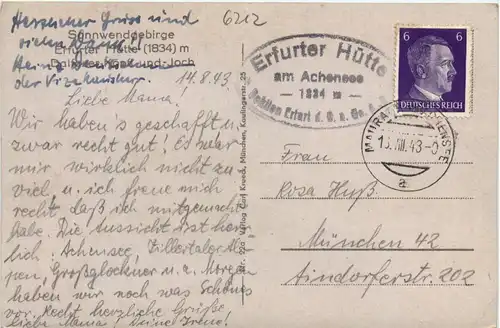 Herzlicher Gruss und
vielen Dank!
Heinz
der Vizehäusler.
6212
Sonnwendgebirge
Erfurter Hütte (1834) m
Dalfazer Joch
14.8.43
Liebe Mama!
Wir haben's geschafft u.
zwar recht gut! Es war
mir wirklich nicht zu
viel u. ich freue mich
recht daß ich mitgemacht
habe. Die Aussicht ist herr-
lich: Achensee, Zillertaler Al-
pen, Großglockner u.s. Morgen
haben wir noch was Schönes
vor. Recht herzliche Grüße,
liebe Mama! Deine Irene!
Verlag Karl Krueck, München, Kaulingerstr. 25
Erfurter Hütte
am Achensee
— 1834 m —
Sektion Erfurt d. D. u. Oe. A. V.
6 6
DEUTSCHES REICH
MAURACH ACHENSEE
13. VIII. 43-
a
Frau
Rosa Huß.
München 42
Aindorferstr. 202